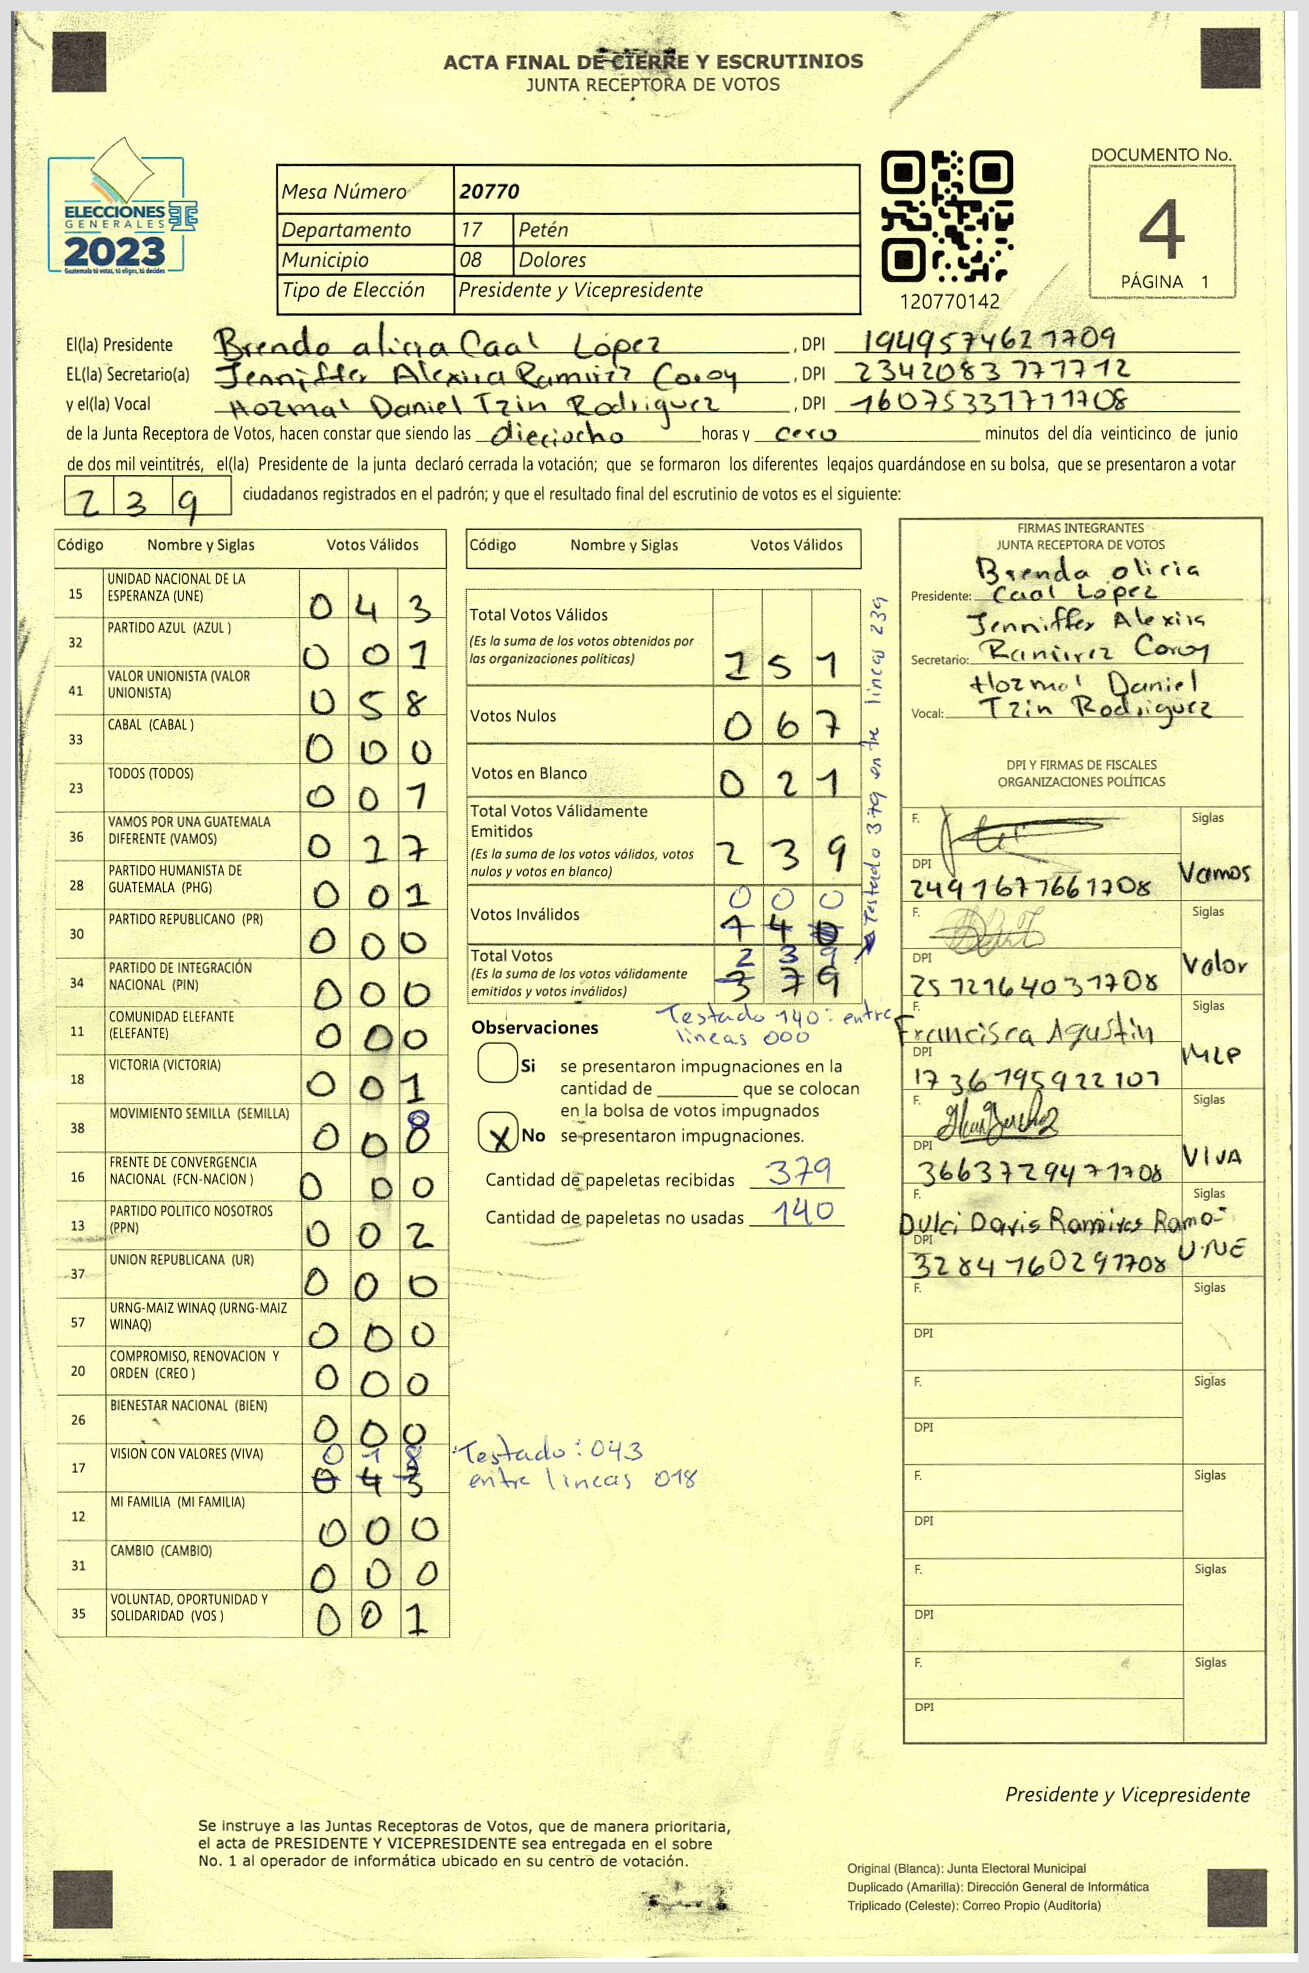 ACTA FINAL DE CIERRE Y ESCRUTINIOS
JUNTA RECEPTORA DE VOTOS
ELECCIONES
GENERALES
2023
Guatemala tú votas, tú eliges, tú decides
Mesa Número 20770
Departamento 17 Petén
Municipio 08 Dolores
Tipo de Elección Presidente y Vicepresidente
120770142
DOCUMENTO No.
4
PÁGINA 1
El(la) Presidente Brenda alicia Caal López, DPI 1949574621709
EL(la) Secretario(a) Jenniffer Alexira Ramirez Coroy, DPI 2342083771712
y el(la) Vocal Hozmal Daniel Tzin Rodriguez, DPI 1607533171708
de la Junta Receptora de Votos, hacen constar que siendo las dieciocho horas y cero minutos del día veinticinco de junio
de dos mil veintitrés, el(la) Presidente de la junta declaró cerrada la votación; que se formaron los diferentes legajos guardándose en su bolsa, que se presentaron a votar
239 ciudadanos registrados en el padrón; y que el resultado final del escrutinio de votos es el siguiente:
Código Nombre y Siglas Votos Válidos
15 UNIDAD NACIONAL DE LA ESPERANZA (UNE) 043
32 PARTIDO AZUL (AZUL ) 001
41 VALOR UNIONISTA (VALOR UNIONISTA) 058
33 CABAL (CABAL ) 000
23 TODOS (TODOS) 001
36 VAMOS POR UNA GUATEMALA DIFERENTE (VAMOS) 027
28 PARTIDO HUMANISTA DE GUATEMALA (PHG) 001
30 PARTIDO REPUBLICANO (PR) 000
34 PARTIDO DE INTEGRACIÓN NACIONAL (PIN) 000
11 COMUNIDAD ELEFANTE (ELEFANTE) 000
18 VICTORIA (VICTORIA) 001
38 MOVIMIENTO SEMILLA (SEMILLA) 00
16 FRENTE DE CONVERGENCIA NACIONAL (FCN-NACION ) 000
13 PARTIDO POLITICO NOSOTROS (PPN) 002
37 UNION REPUBLICANA (UR) 000
57 URNG-MAIZ WINAQ (URNG-MAIZ WINAQ) 000
20 COMPROMISO, RENOVACION Y ORDEN (CREO ) 000
26 BIENESTAR NACIONAL (BIEN) 000
17 VISION CON VALORES (VIVA) 018 043
Testado: 043
entre lineas 018
12 MI FAMILIA (MI FAMILIA) 000
31 CAMBIO (CAMBIO) 000
35 VOLUNTAD, OPORTUNIDAD Y SOLIDARIDAD (VOS ) 001
Código Nombre y Siglas Votos Válidos
Total Votos Válidos
(Es la suma de los votos obtenidos por
las organizaciones políticas) 151
Votos Nulos 067
Votos en Blanco 021
Total Votos Válidamente
Emitidos
(Es la suma de los votos válidos, votos
nulos y votos en blanco) 239
Votos Inválidos 000 140
Total Votos 239
(Es la suma de los votos válidamente
emitidos y votos inválidos) 379
Testado 379 entre lineas 239
Testado 140: entre
lineas 000
Observaciones
Si se presentaron impugnaciones en la
cantidad de ________ que se colocan
en la bolsa de votos impugnados
X No se presentaron impugnaciones.
Cantidad de papeletas recibidas 379
Cantidad de papeletas no usadas 140
FIRMAS INTEGRANTES
JUNTA RECEPTORA DE VOTOS
Presidente: Brenda olicia
Caal López
Secretario: Jenniffer Alexira
Ramirez Coroy
Vocal: Hozmal Daniel
Tzin Rodriguez
DPI Y FIRMAS DE FISCALES
ORGANIZACIONES POLÍTICAS
F. Siglas
DPI 2491677661708 Vamos
F. Siglas
DPI 2512164031708 Valor
F. Francisca Agustin Siglas
DPI 1736795922107 MLP
F. Siglas
DPI 3663729471708 VIVA
F. Dulci Davis Ramires Ramo- Siglas
DPI 3284760291708 UNE
F. Siglas
DPI
F. Siglas
DPI
F. Siglas
DPI
F. Siglas
DPI
F. Siglas
DPI
Presidente y Vicepresidente
Se instruye a las Juntas Receptoras de Votos, que de manera prioritaria,
el acta de PRESIDENTE Y VICEPRESIDENTE sea entregada en el sobre
No. 1 al operador de informática ubicado en su centro de votación.
Original (Blanca): Junta Electoral Municipal
Duplicado (Amarilla): Dirección General de Informática
Triplicado (Celeste): Correo Propio (Auditoría)